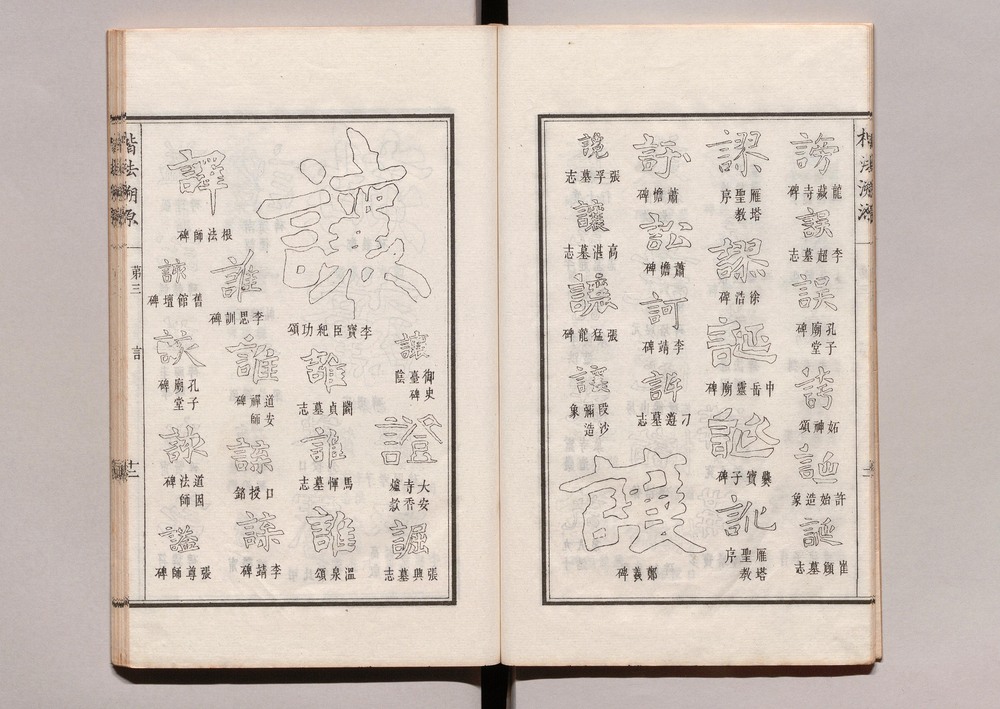 謗
龍藏寺碑
誤
李超墓志
誤
孔子廟堂碑
誇
妬神頌
誕
許始造象
誕
崔頠墓志
謬
雁塔聖教序
謬
徐浩碑
誕
中岳靈廟碑
誕
爨寶子碑
訛
雁塔聖教序
蕭憺碑
訟
蕭憺碑
訶
李靖碑
訴
刁遵墓志
張孚墓志
讓
高湛墓志
讓
張猛龍碑
讓
段沙彌造象
讓
鄭羲碑
李寶臣紀功頌
讓
御史臺碑陰
證
大安寺香爐款
張興墓志
誰
閻貞墓志
誰
馬惲墓志
誰
溫泉頌
譯
根法師碑
誰
李思訓碑
誰
道安禪師碑
口授銘
李靖碑
舊館壇碑
孔子廟堂碑
道因法師碑
謚
張尊師碑
楷法溯原
第三
言
十二